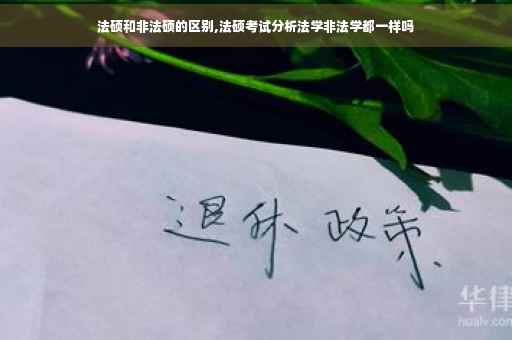 法硕和非法硕的区别,法硕考试分析法学非法学都一样吗
退休 政策
华律
hualv.com